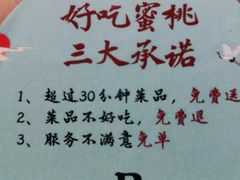 好吃蜜桃
三大承诺
1、超过30分钟菜品，免费送
2、菜品不好吃，免费退
3、服务不满意免单